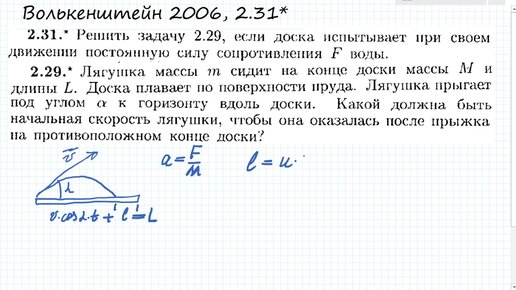 Волькенштейн 2006, 2.31*
2.31.* Решить задачу 2.29, если доска испытывает при своем
движении постоянную силу сопротивления F воды.
2.29.* Лягушка массы m сидит на конце доски массы M и
длины L. Доска плавает по поверхности пруда. Лягушка прыгает
под углом α к горизонту вдоль доски. Какой должна быть
начальная скорость лягушки, чтобы она оказалась после прыжка
на противоположном конце доски?
v a = F/M l = u·
α
v·cosα·t + l = L